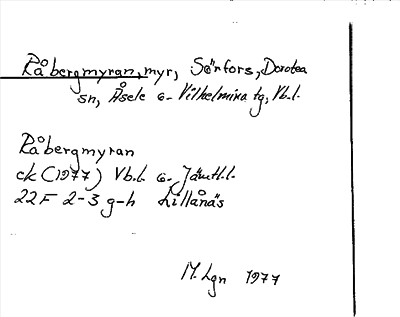 Råbergmyran, myr, Sörfors, Dorotea
sn, Åsele o. Vilhelmina tg, Vb.l.
Råbergmyran
ek (1977) Vb.l. o. Jämtl.l.
22F 2-3 g-h Lillånäs
M. Lgn 1977